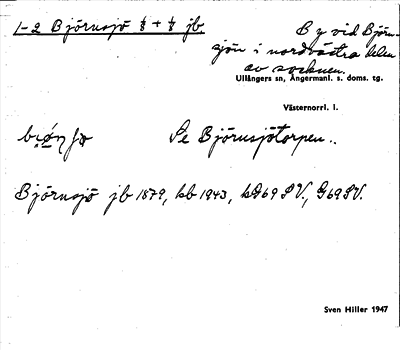 1-2 Björnsjö ⅛ + ⅛ jb.
By vid Björn-
sjön i nordvästra delen
av socknen.
Ullångers sn, Ångermanl. s. doms. tg.
Västernorrl. l.
Se Björnsjötorpen..
Björnsjö jb 1879, kb 1943, kG69SV., G69SV.
Sven Hiller 1947